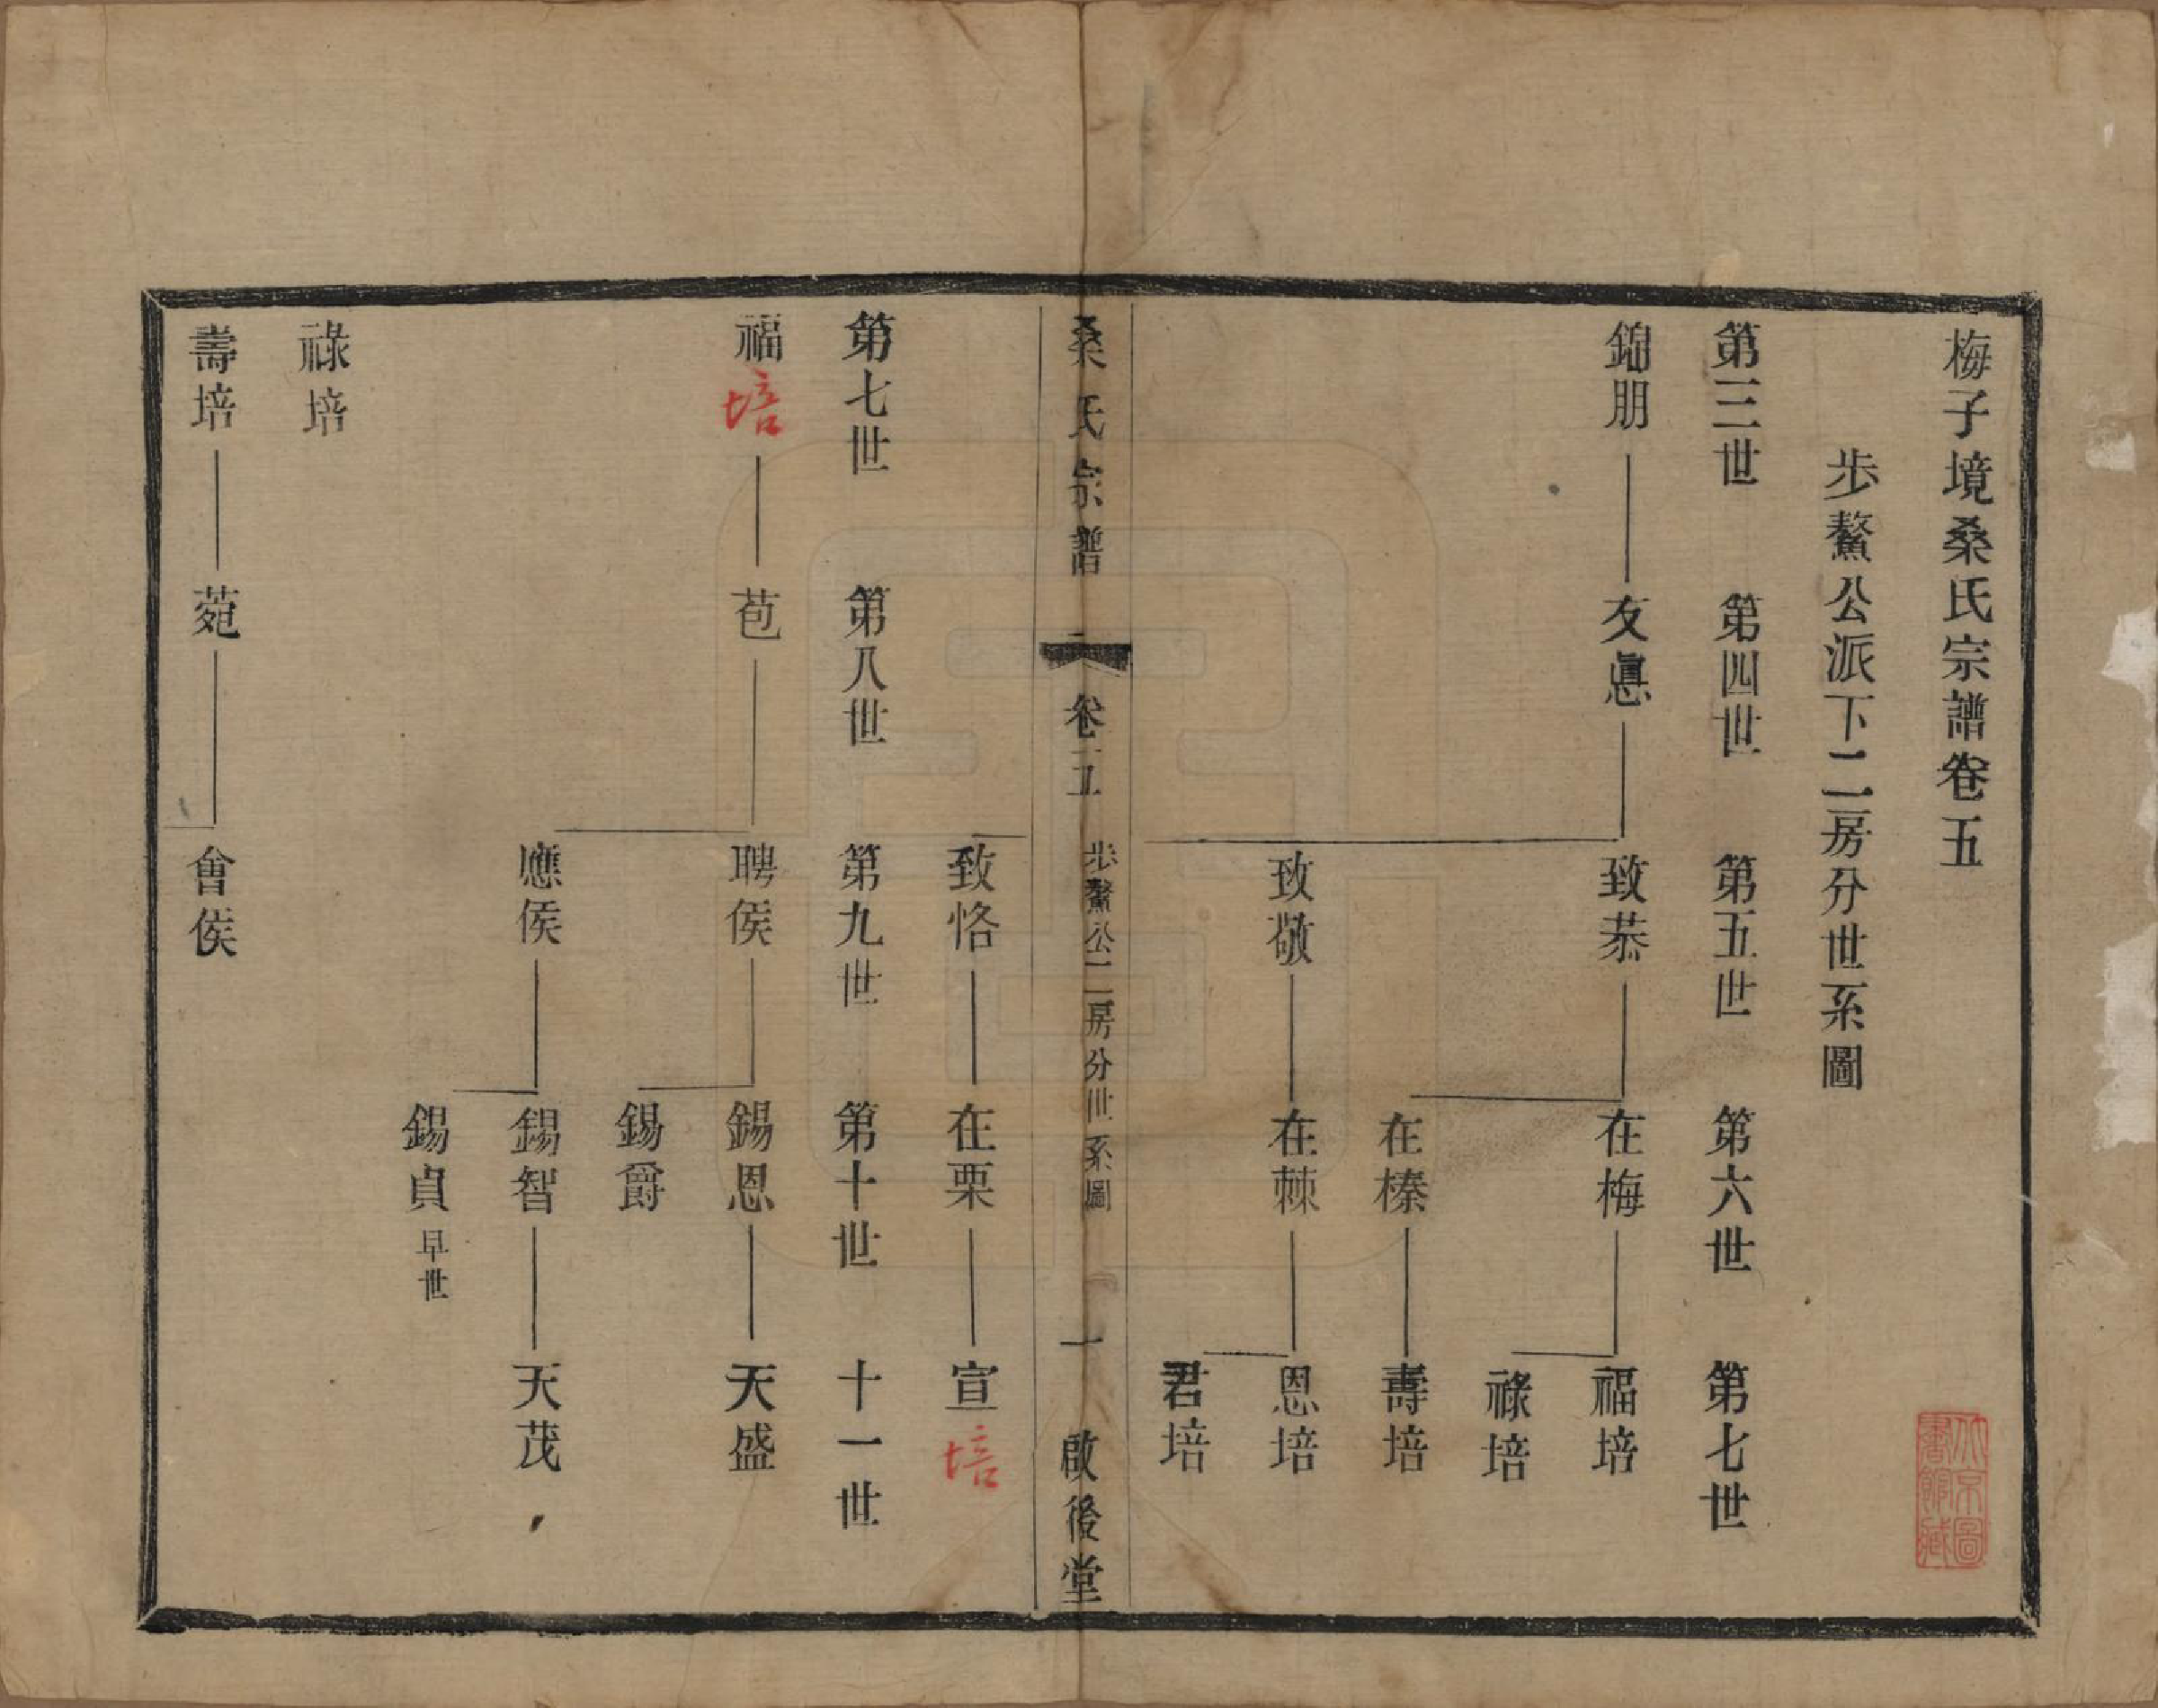 梅子境桑氏宗譜卷五
步鰲公派下二房分世系圖
第三世 第四世 第五世 第六世 第七世
錦朋 友惪 致恭 在梅 福培
祿培
在榛 壽培
致敬 在棘 恩培
君培
桑氏宗譜 卷五 步鰲公二房分世系圖 一 啟後堂
致恪 在栗 宣培
第七世 第八世 第九世 第十世 十一世
福培 苞 聘侯 錫恩 天盛
錫爵
應侯 錫智 天茂
錫貞 早世
祿培
壽培 菀 會侯
北京圖
書館藏